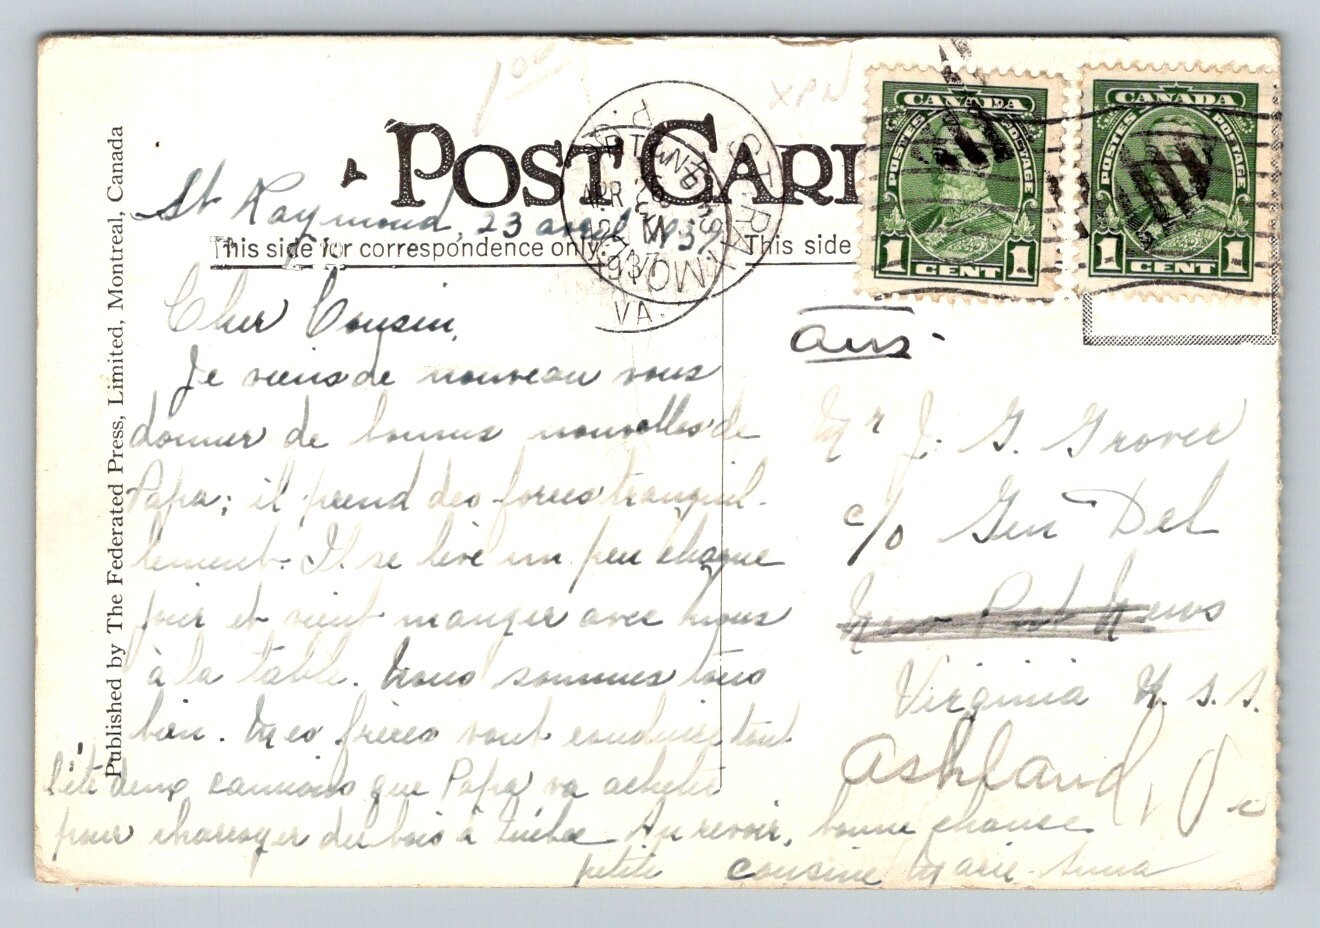 1 00
XPN
POST CARD
This side for correspondence only.
This side
Published by The Federated Press, Limited, Montreal, Canada
ST. RAYMOND
P.Q.
APR 26
1937
VA.
CANADA
POSTES POSTAGE
1 CENT 1
CANADA
POSTES POSTAGE
1 CENT 1
St Raymond, 23 avril 1937
Cher Cousin,
Je viens de nouveau vous
donner de bonnes nouvelles de
Papa; il prend des forces tranquil-
lement. Il se lève un peu chaque
jour et vient manger avec nous
à la table. Nous sommes tous
bien. Mes frères vont conduire tout
l'été deux camions que Papa va acheter
pour charroyer du bois à Québec. Au revoir, bonne chance
petite cousine Marie-Anna
ans.
Mr J. G. Grover
c/o Gen Del
New Port News
Virginia U.S.A.
Ashland, Va